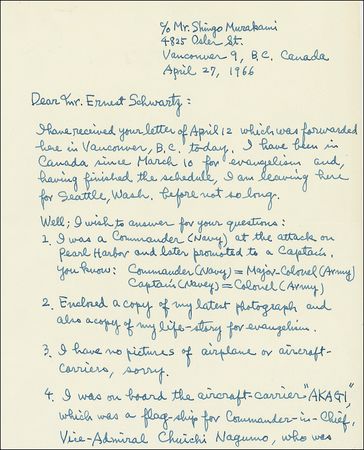 c/o Mr. Shingo Murakami
4825 Osler St.
Vancouver 9, B.C. Canada
April 27, 1966
Dear Mr. Ernest Schwartz:
I have received your letter of April 12 which was forwarded
here in Vancouver, B.C. today. I have been in
Canada since March 10 for evangelism and,
having finished the schedule, I am leaving here
for Seattle, Wash. before not so long.
Well; I wish to answer for your questions:
1. I was a Commander (Navy) at the attack on
Pearl Harbor and later promoted to a Captain.
You know: Commander (Navy) = Major-Colonel (Army)
Captain (Navey) = Colonel (Army)
2. Enclosed a copy of my latest photograph and
also a copy of my life-story for evangelism.
3. I have no pictures of airplane or aircraft-
carriers, sorry.
4. I was on board the aircraft-carrier "AKAGI,
which was a flag-ship for Commander-in-Chief,
Vice-Admiral Chuichi Nagumo, who was